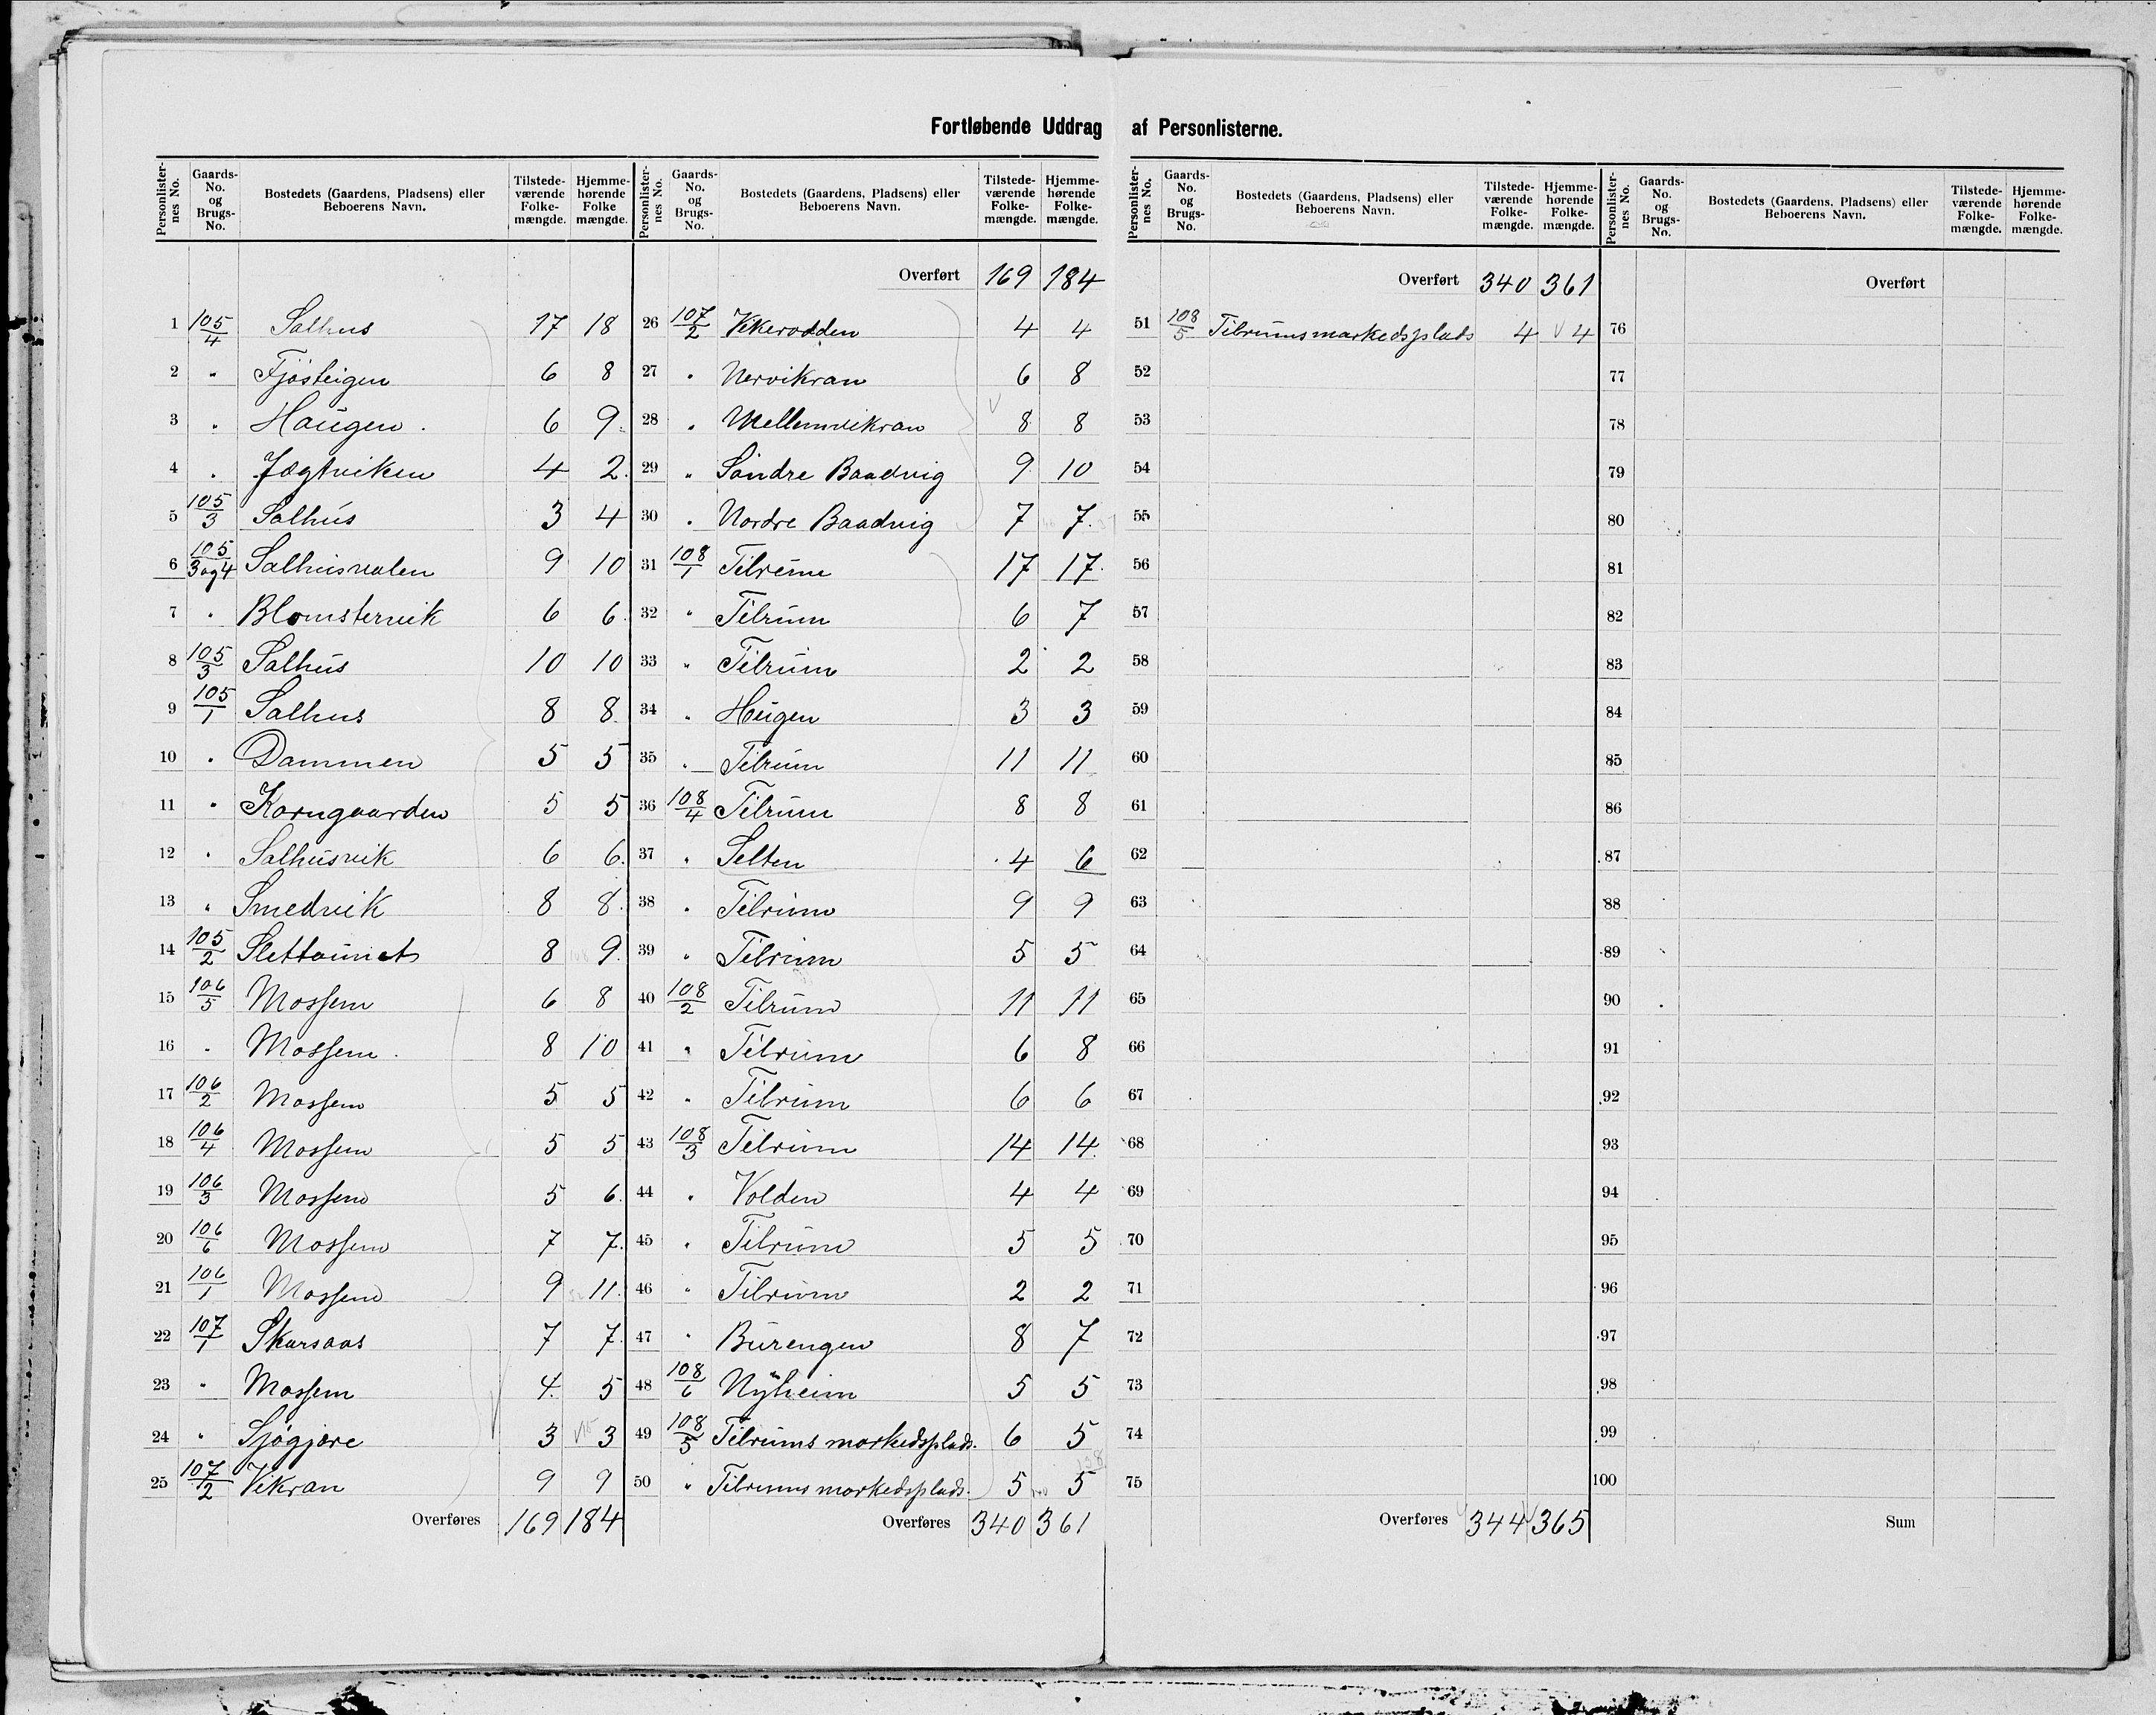 Fortløbende Uddrag af Personlisterne.
Personlister-nes No. Gaards-No. og Brugs-No. Bostedets (Gaardens, Pladsens) eller Beboerens Navn. Tilstede-værende Folke-mængde. Hjemme-hørende Folke mængde.
1 105/4 Salhus 17 18
2 " Fjøsteigen 6 8
3 " Haugen 6 9
4 " Jægtviken 4 2
5 105/3 Salhus 3 4
6 105/3og4 Salhusvalen 9 10
7 " Blomstervik 6 6
8 105/3 Salhus 10 10
9 105/1 Salhus 8 8
10 " Dammen 5 5
11 " Korngaarden 5 5
12 " Salhusvik 6 6
13 " Smedvik 8 8
14 105/2 Slettaunet 8 9
15 106/5 Mossem 6 8
16 " Mossem 8 10
17 106/2 Mossem 5 5
18 106/4 Mossem 5 5
19 106/3 Mossem 5 6
20 106/6 Mossem 7 7
21 106/1 Mossem 9 11
22 107/1 Skarsaas 7 7
23 " Mossem 4 5
24 " Sjøgjøre 3 3
25 107/2 Vikran 9 9
Overføres 169 184
Personlister-nes No. Gaards-No. og Brugs-No. Bostedets (Gaardens, Pladsens) eller Beboerens Navn. Tilstede-værende Folke-mængde. Hjemme-hørende Folke-mængde.
Overført 169 184
26 107/2 Vikerodden 4 4
27 " Nervikran 6 8
28 " Mellemvikran 8 8
29 " Søndre Baadvig 9 10
30 " Nordre Baadvig 7 7
31 108/1 Tilrem 17 17
32 " Tilrum 6 7
33 " Tilrum 2 2
34 " Heigen 3 3
35 " Tilrum 11 11
36 108/4 Tilrum 8 8
37 " Selten 4 6
38 " Tilrum 9 9
39 " Tilrum 5 5
40 108/2 Tilrum 11 11
41 " Tilrum 6 8
42 " Tilrum 6 6
43 108/3 Tilrum 14 14
44 " Volden 4 4
45 " Tilrum 5 5
46 " Tilrum 2 2
47 " Burengen 8 7
48 108/6 Nyheim 5 5
49 108/5 Tilrums markedsplads. 6 5
50 " Tilrums markedsplads. 5 5
Overføres 340 361
Personlister-nes No. Gaards-No. og Brugs-No. Bostedets (Gaardens, Pladsens) eller Beboerens Navn. Tilstede-værende Folke-mængde. Hjemme-hørende Folke-mængde.
Overført 340 361
51 108/5 Tilrums markedsplads 4 4
52
53
54
55
56
57
58
59
60
61
62
63
64
65
66
67
68
69
70
71
72
73
74
75
Overføres 344 365
Personlister-nes No. Gaards-No. og Brugs-No. Bostedets (Gaardens, Pladsens) eller Beboerens Navn. Tilstede-værende Folke-mængde. Hjemme-hørende Folke-mængde.
Overført
76
77
78
79
80
81
82
83
84
85
86
87
88
89
90
91
92
93
94
95
96
97
98
99
100
Sum